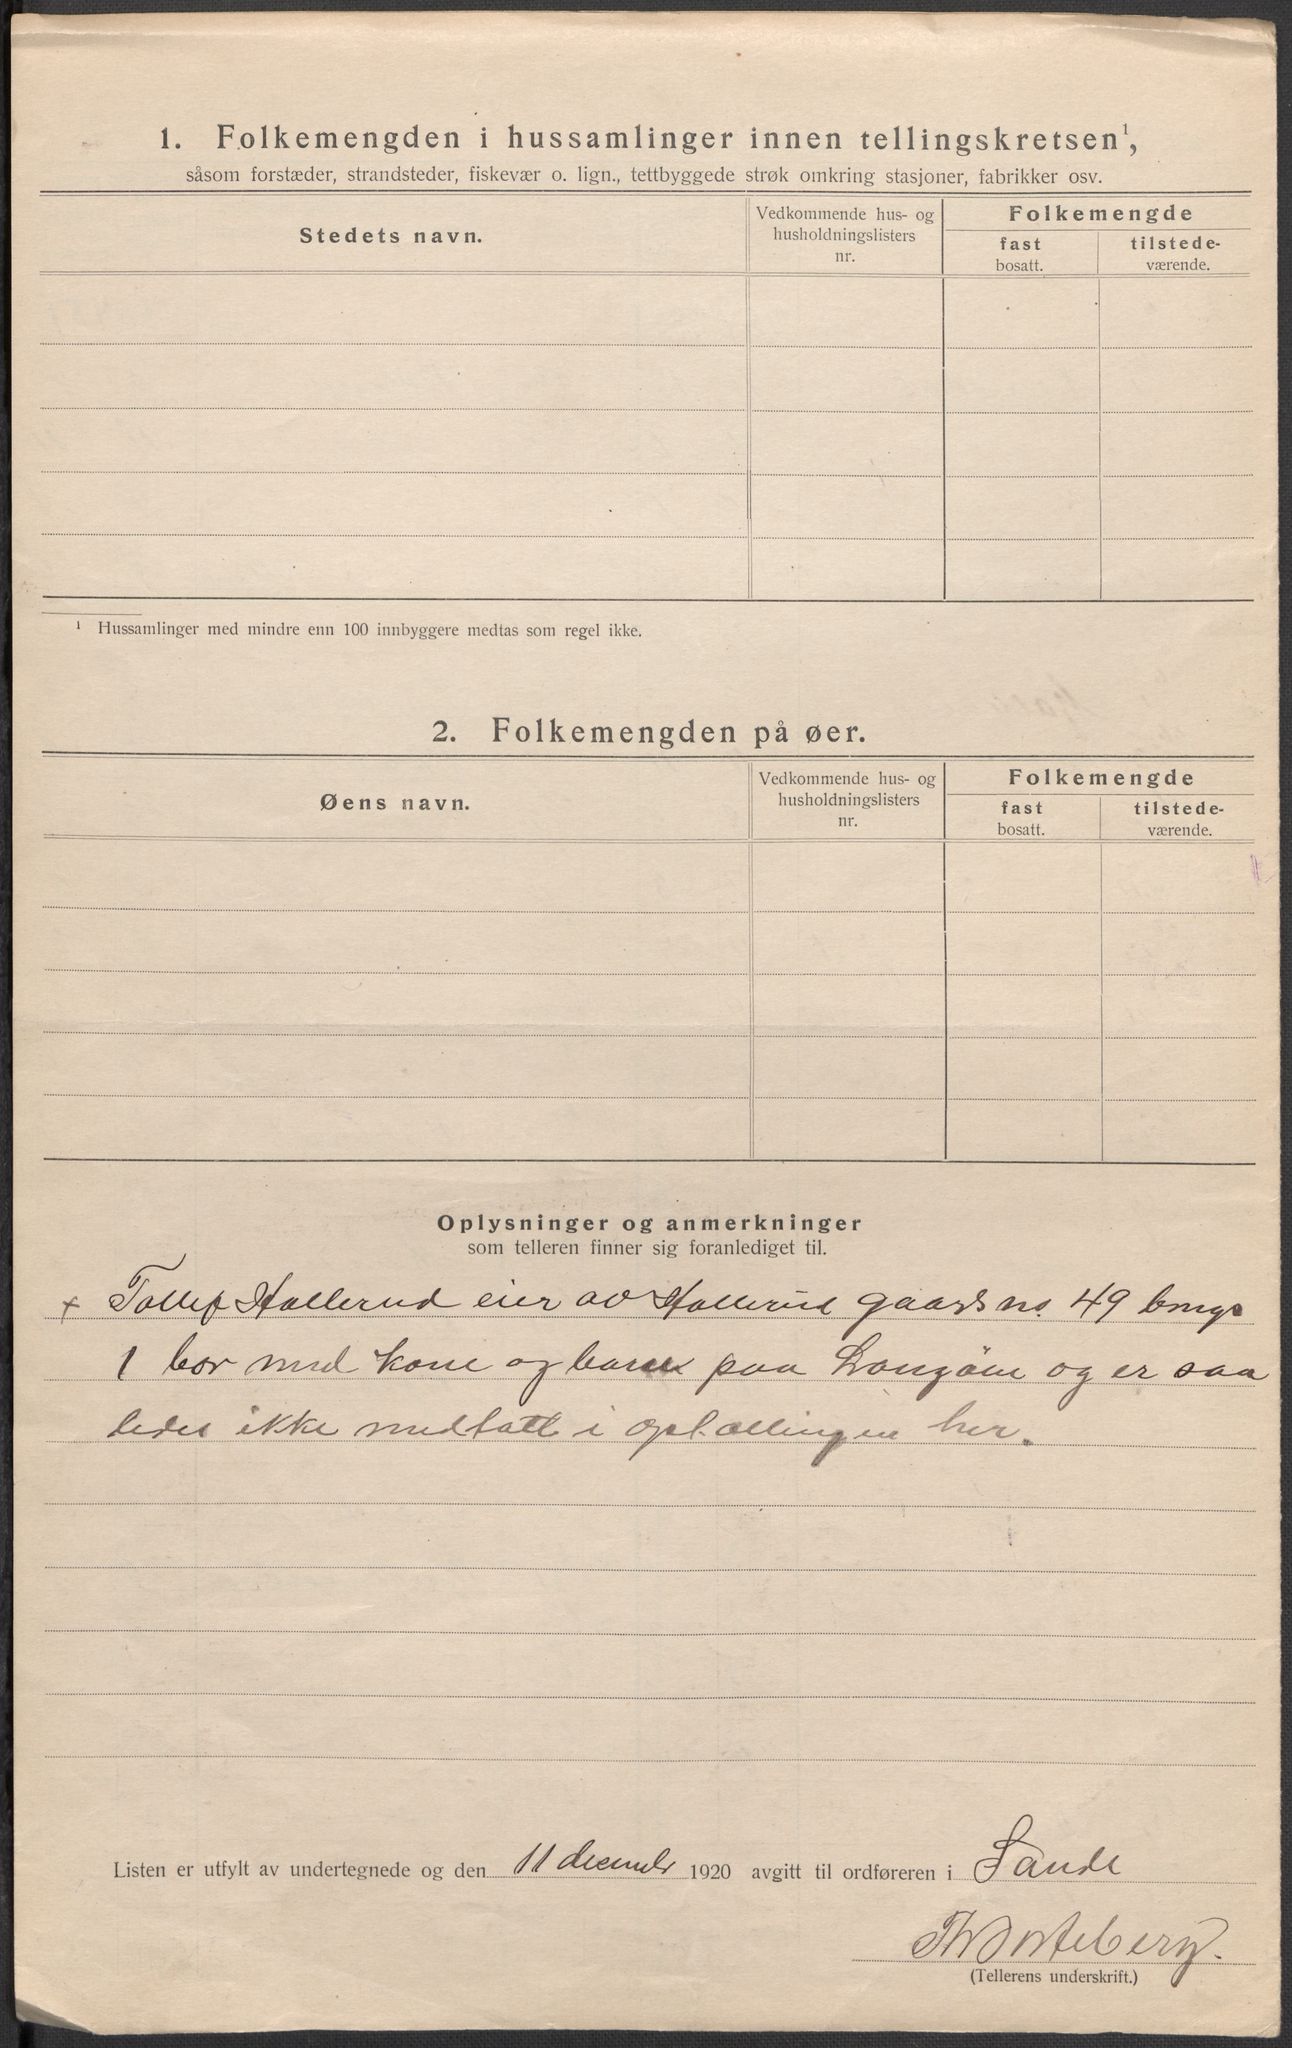 1. Folkemengden i hussamlinger innen tellingskretsen¹,
såsom forstæder, strandsteder, fiskevær o. lign., tettbyggede strøk omkring stasjoner, fabrikker osv.
Stedets navn.
Vedkommende hus- og
husholdningslisters
nr.
Folkemengde
fast
bosatt.
tilstede-
værende.
¹ Hussamlinger med mindre enn 100 innbyggere medtas som regel ikke.
2. Folkemengden på øer.
Øens navn.
Vedkommende hus- og
husholdningslisters
nr.
Folkemengde
fast
bosatt.
tilstede-
værende.
Oplysninger og anmerkninger
som telleren finner sig foranlediget til.
+ Tollef Hallerud eier av Hallerud gaards no. 49 brugs
1 bor med kone og barn paa Langöen og er saa
ledes ikke medtatt i optællingen her.
Listen er utfylt av undertegnede og den 11 december 1920 avgitt til ordføreren i Sande
(Tellerens underskrift.)